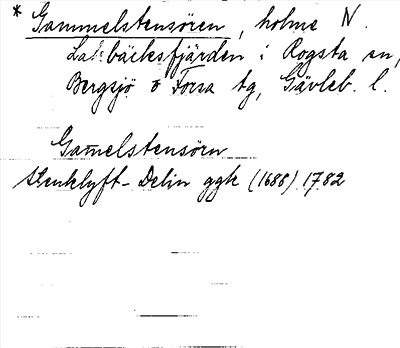 * Gammelstensören, holme N.
bäcksfjärden i Rogsta sn,
Bergsjö o Forsa tg, Gävleb. l.
Gam̄elstensörn
Stenklyft-Delin ggk (1688) 1782